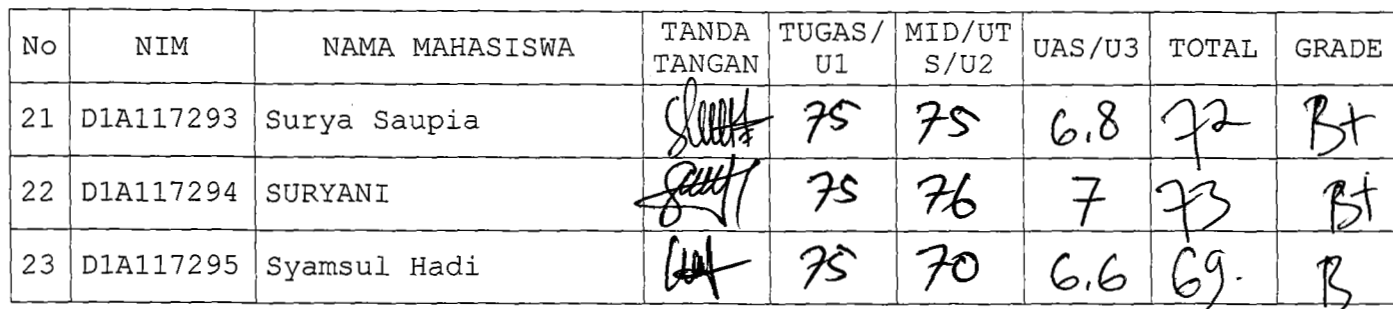 No NIM NAMA MAHASISWA TANDA TANGAN TUGAS/U1 MID/UTS/U2 UAS/U3 TOTAL GRADE
21 D1A117293 Surya Saupia 75 75 6.8 72 B+
22 D1A117294 SURYANI 75 76 7 73 B+
23 D1A117295 Syamsul Hadi 75 70 6.6 69. B